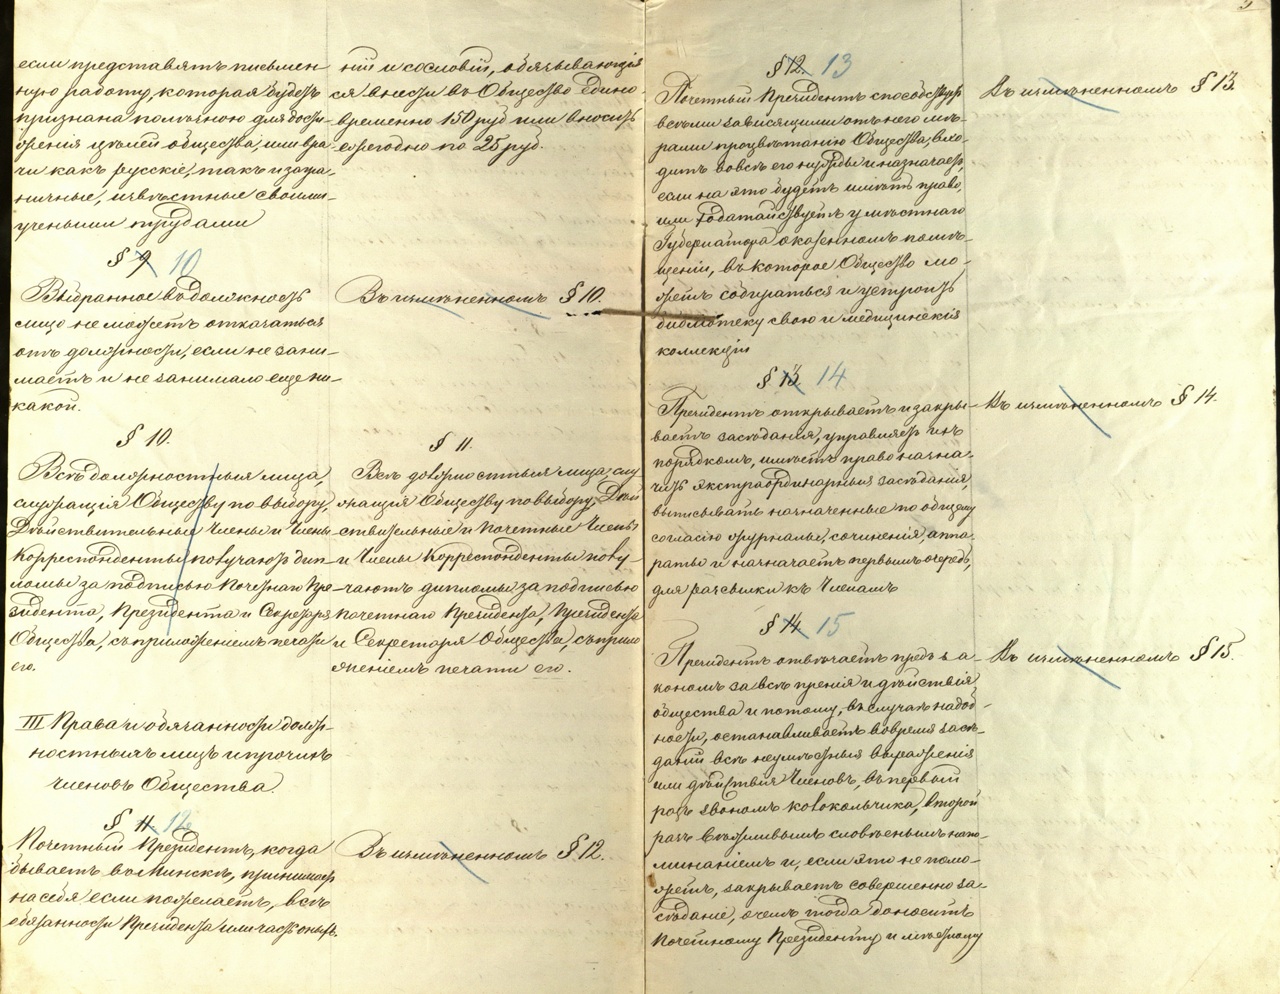 если представятъ письмен-
ную работу, которая будетъ
признана полезною для дости-
женія цѣлей общества, или вра-
чи какъ русскіе, такъ и загра-
ничные, извѣстные своими
учеными трудами
§ 9 10
Выбранное въ должность
лицо не можетъ отказаться
отъ должности, если не зани-
маетъ и не занимало еще ни-
какой.
§ 10.
Всѣ должностныя лица,
служащія Обществу по выбору,
Дѣйствительные Члены и Члены
Корреспонденты получаютъ дип-
ломы за подписью Почетнаго Пре-
зидента, Президента и Секретаря
Общества, съ приложеніемъ печати
его.
III Права и обязанности долж-
ностныхъ лицъ и прочихъ
членовъ Общества.
§ 11 12
Почетный Президентъ, когда
бываетъ въ Минскѣ, принимаетъ
на себя если пожелаетъ, всѣ
обязанности Президента или часть оныхъ.
ній и сословій, обязывающія
ся внести въ Общество едино
временно 150 руб или вносить
ежегодно по 25 руб.
Въ измѣненномъ § 10.
§ 11.
Всѣ должностныя лица, слу
жащія Обществу по выбору, Дѣй
ствительные и Почетные Члены
и Члены Корреспонденты полу-
чаютъ дипломы за подписью
Почетнаго Президента, Президента
и Секретаря Общества, съ прило
женіемъ печати его.
Въ измѣненномъ § 12.
§ 12. 13
Почетный Президентъ способствуетъ
всѣми зависящими отъ него мѣ-
рами процвѣтанію Общества, вхо-
дитъ во всѣ его нужды и назначаетъ,
если на это будетъ имѣть право,
или ходатайствуетъ у мѣстнаго
Губернатора о казенномъ помѣ-
щеніи, въ которое Общество мо-
жетъ собираться и устроить
библіотеку свою и медицинскія
коллекціи
§ 13 14
Президентъ открываетъ и закры-
ваетъ засѣданія, управляетъ ихъ
порядкомъ, имѣетъ право назна-
чать экстраординарныя засѣданія,
выписывать назначенные по общему
согласію журналы, сочиненія, аппа-
раты и назначаетъ первымъ очередь,
для разсылки къ Членамъ
§ 14 15
Президентъ отвѣчаетъ предъ за-
кономъ за всѣ пренія и дѣйствія
общества и потому, въ случаѣ надоб-
ности, останавливаетъ во время засѣ-
даній всѣ неумѣстныя выраженія
или дѣйствія Членовъ, въ первый
разъ звономъ колокольчика, второй
разъ вѣжливымъ словеснымъ напо-
минаніемъ и, если это не помо-
жетъ, закрываетъ совершенно за-
сѣданіе, о чемъ тогда доноситъ
Почетному Президенту и мѣстному
Въ измѣненномъ § 13.
Въ измѣненномъ § 14.
Въ измѣненномъ § 15.